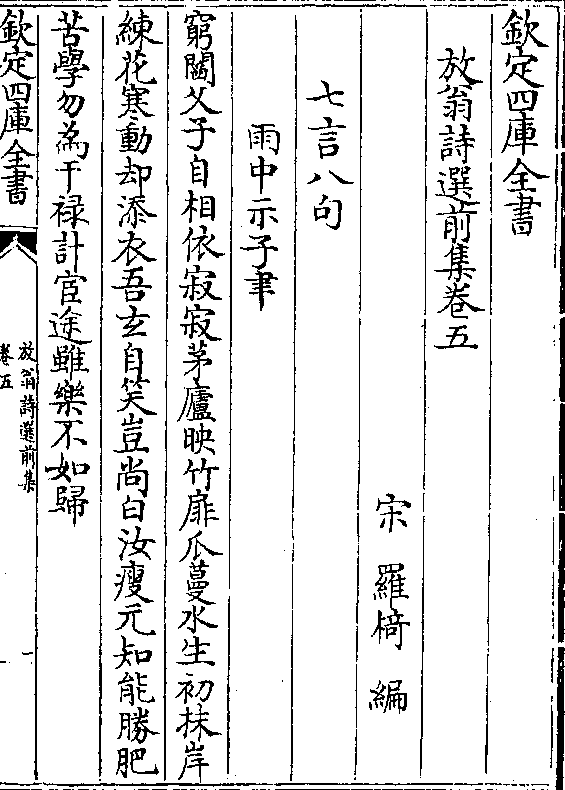 欽定四庫全書
放翁詩選前集卷五
宋 羅椅 編
七言八句
雨中示子聿
窮閻父子自相依寂寂茅廬映竹扉瓜蔓水生初抹岸
練花寒動却添衣吾玄自笑豈尚白汝瘦元知能勝肥
苦學勿為干禄計宦途雖樂不如歸
欽定四庫全書
放翁詩選前集
卷五
一